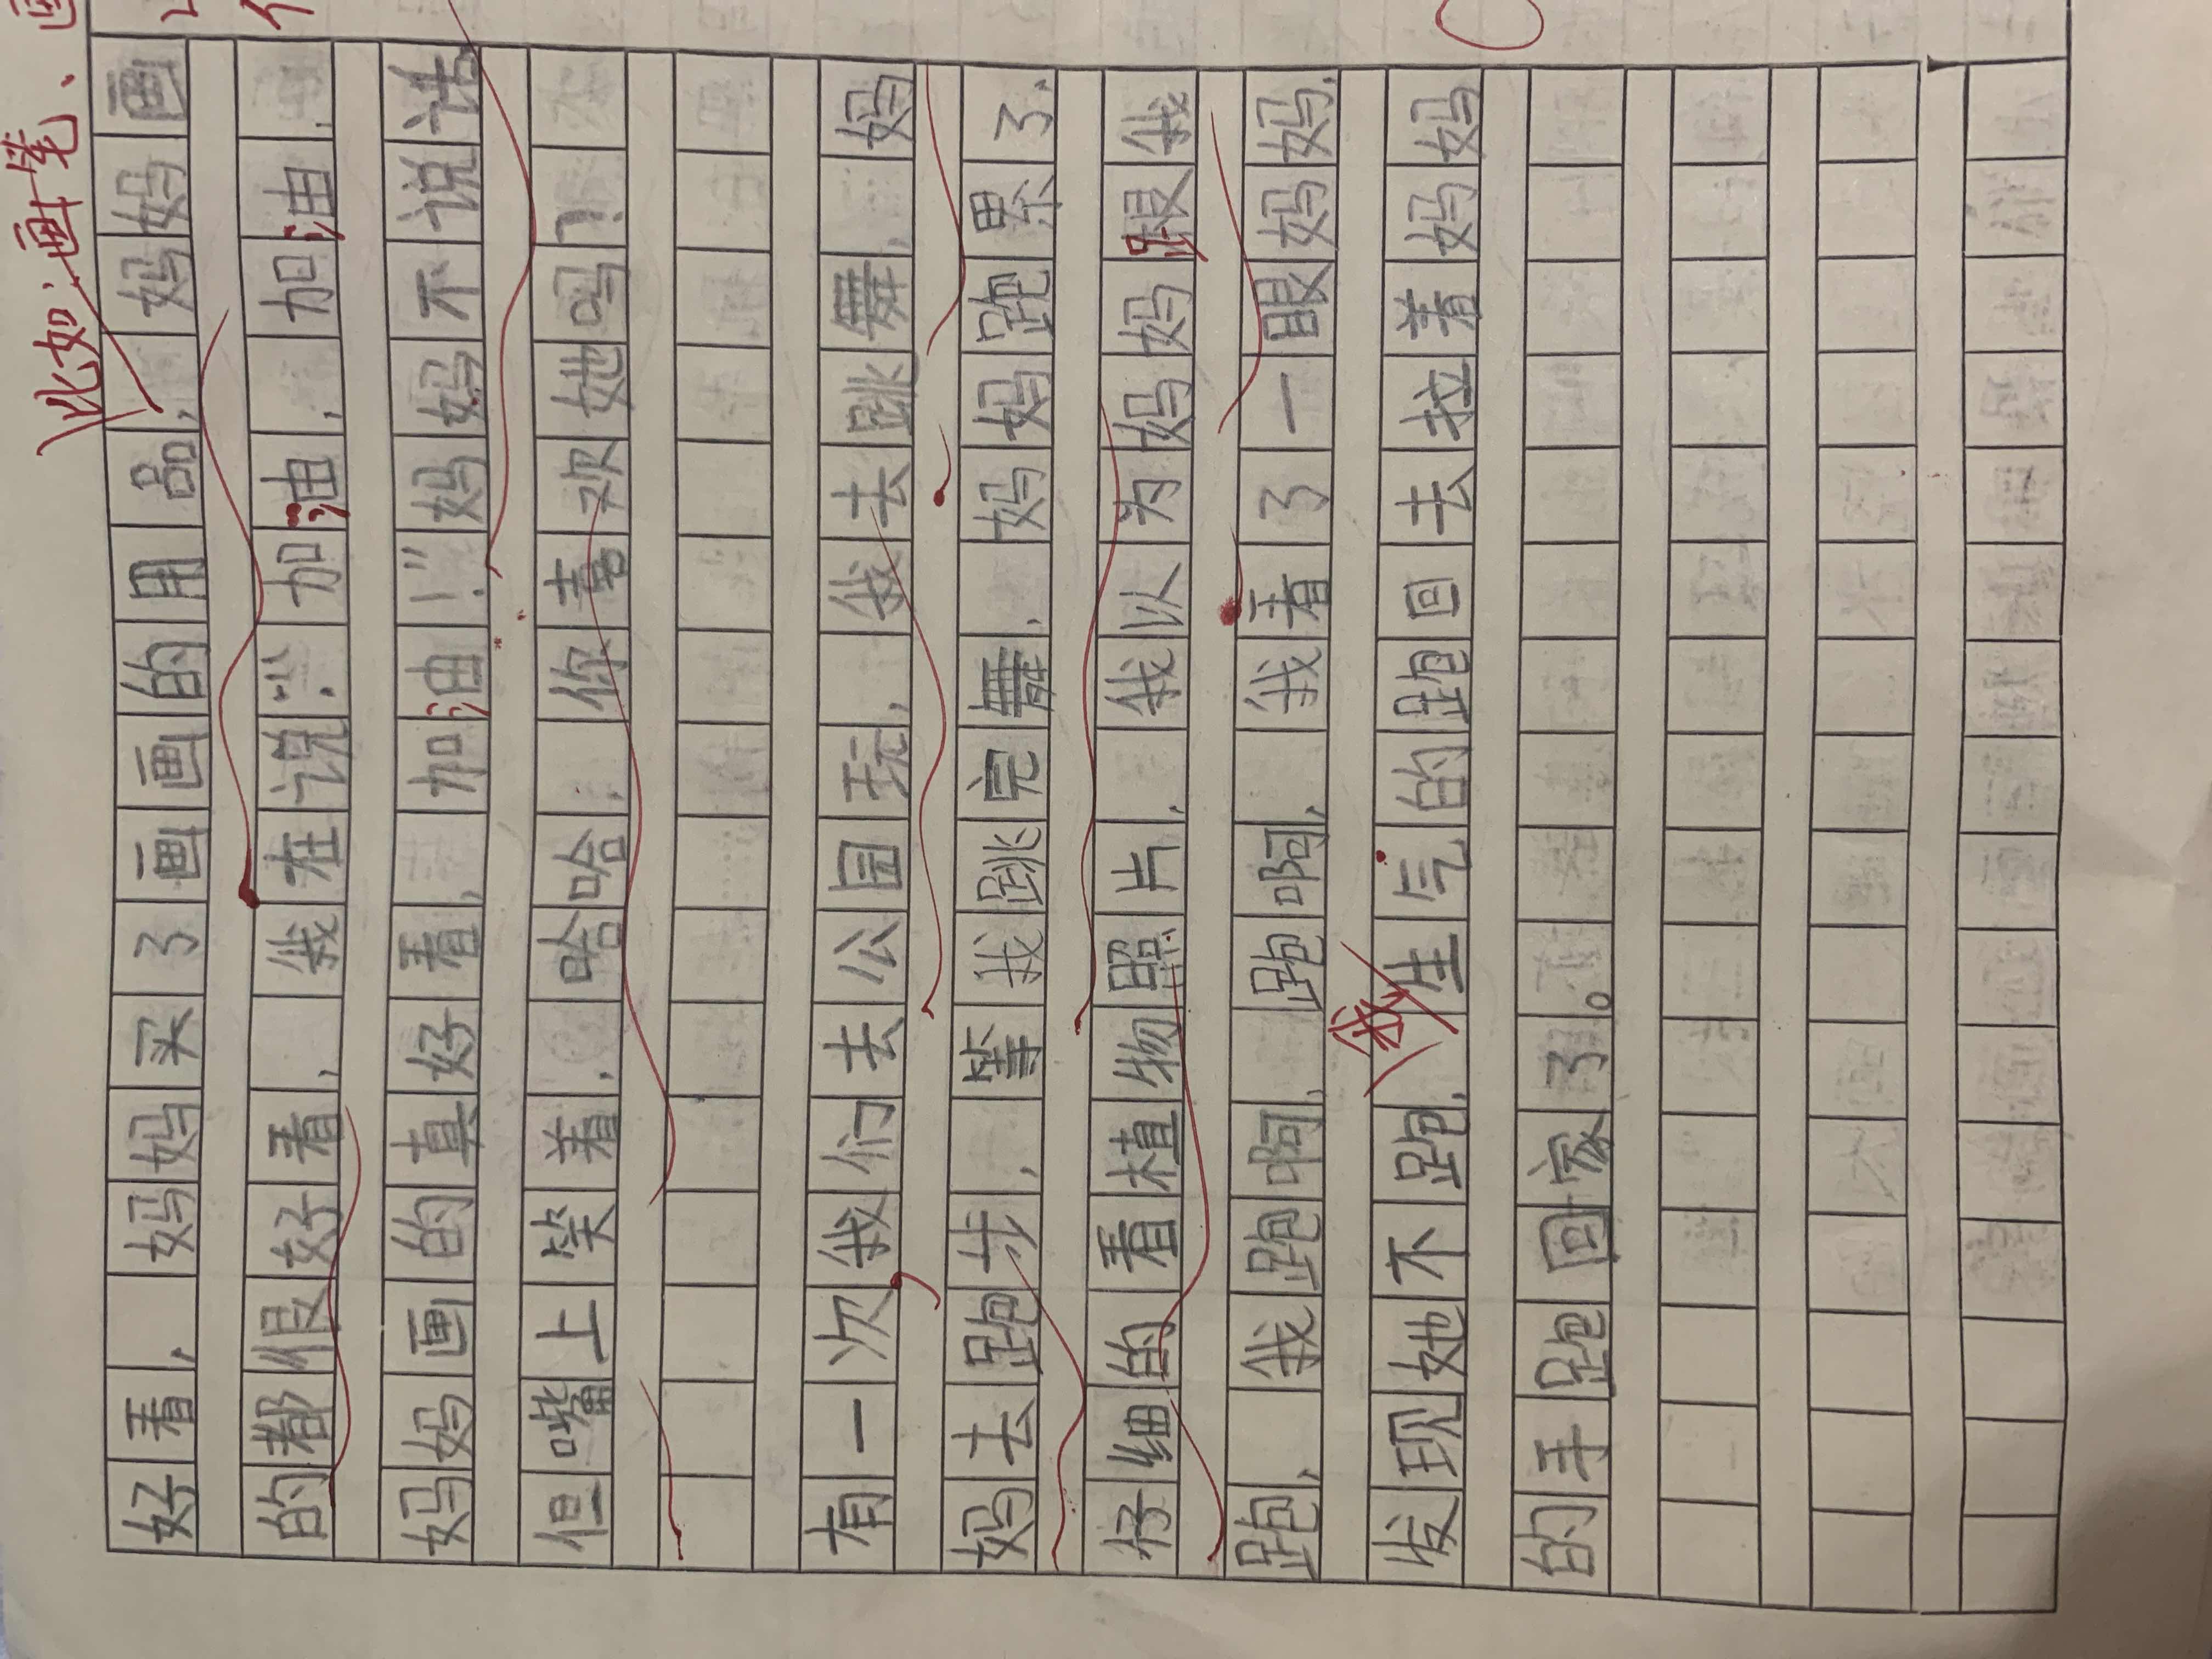 比如:画笔、
好看,妈妈买了画画的用品,妈妈画
的都很好看,我在说:“加油,加油,
妈妈画的真好看,加油!”妈妈不说话
但嘴上笑着,哈哈,你喜欢她吗?
有一次我们去公园玩,我去跳舞,妈
妈去跑步,等我跳完舞,妈妈跑累了,
仔细的看植物照片,我以为妈妈跟我
跑,我跑啊,跑啊,我看了一眼妈妈,
发现她不跑,我生气的跑回去拉着妈妈
的手跑回家了。